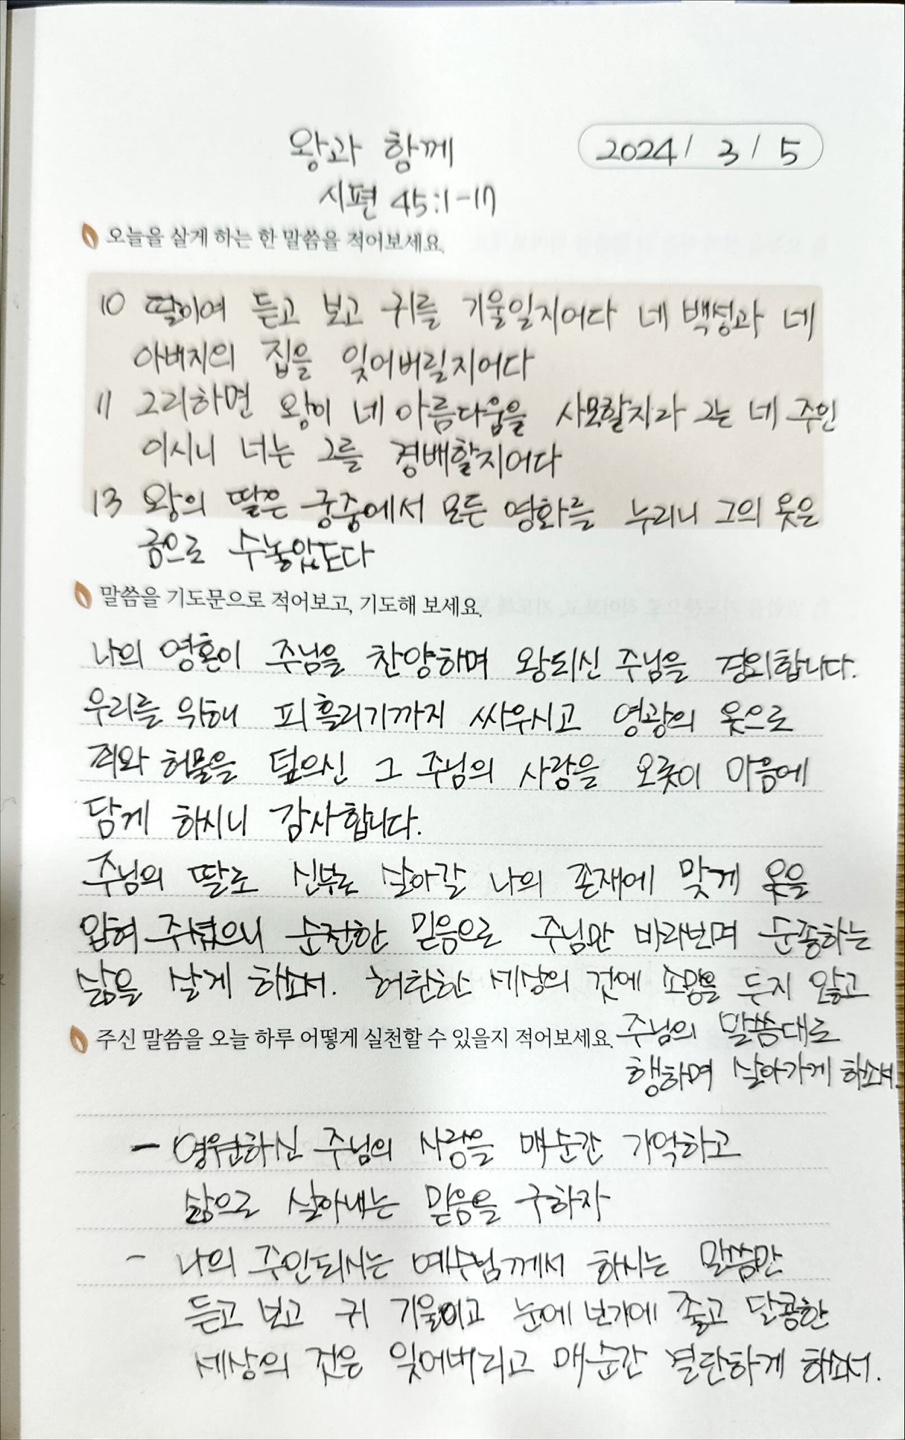 왕과 함께
2024 / 3 / 5
시편 45:1-17
오늘을 살게 하는 한 말씀을 적어보세요.
10 딸이여 듣고 보고 귀를 기울일지어다 네 백성과 네
아버지의 집을 잊어버릴지어다
11 그리하면 왕이 네 아름다움을 사모할지라 그는 네 주인
이시니 너는 그를 경배할지어다
13 왕의 딸은 궁중에서 모든 영화를 누리니 그의 옷은
금으로 수놓았도다
말씀을 기도문으로 적어보고, 기도해 보세요.
나의 영혼이 주님을 찬양하며 왕되신 주님을 경외합니다.
우리를 위해 피 흘리기까지 싸우시고 영광의 옷으로
죄와 허물을 덮으신 그 주님의 사랑을 오롯이 마음에
담게 하시니 감사합니다.
주님의 딸로 신부로 살아갈 나의 존재에 맞게 옷을
입혀 주셨으니 순전한 믿음으로 주님만 바라보며 순종하는
삶을 살게 하소서. 허탄한 세상의 것에 소망을 두지 않고
주님의 말씀대로
행하며 살아가게 하소서
주신 말씀을 오늘 하루 어떻게 실천할 수 있을지 적어보세요.
- 영원하신 주님의 사랑을 매순간 기억하고
삶으로 살아내는 믿음을 구하자
- 나의 주인되시는 예수님께서 하시는 말씀만
듣고 보고 귀 기울이고 눈에 보기에 좋고 달콤한
세상의 것은 잊어버리고 매순간 결단하게 하소서.